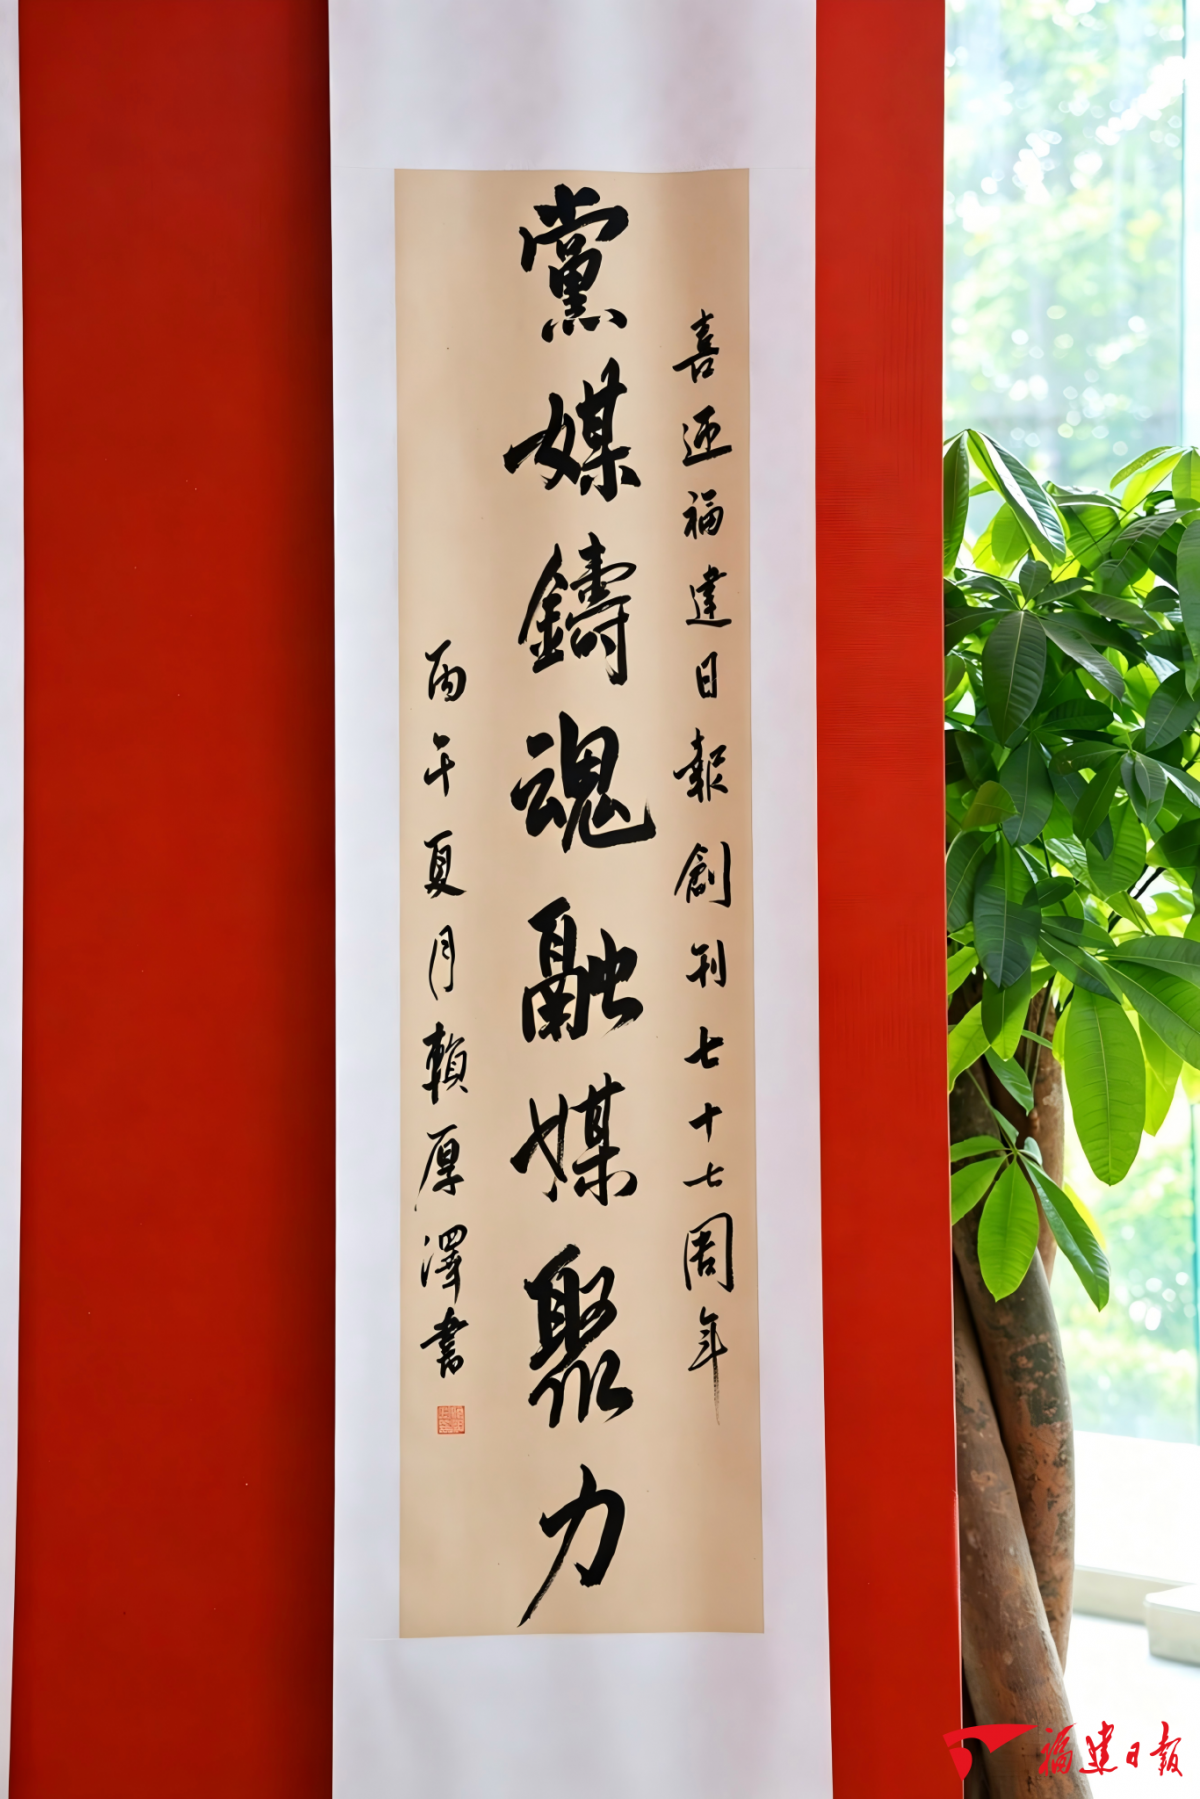 喜迎福建日報創刊七十七周年
黨媒鑄魂融媒聚力
丙午夏月賴厚澤書
福建日报